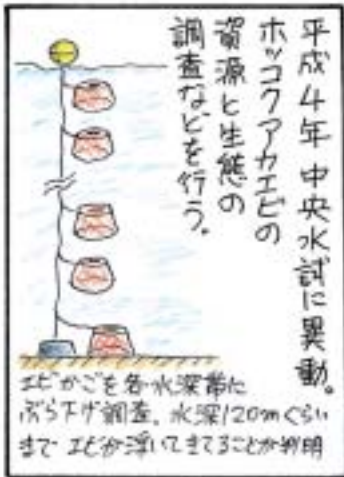 平成4年 中央水試に異動。
ホッコクアカエビの
資源と生態の
調査などを行う。
エビかごを各水深帯に
ぶら下げ調査、水深120mぐらい
まで エビが浮いてきてることが判明